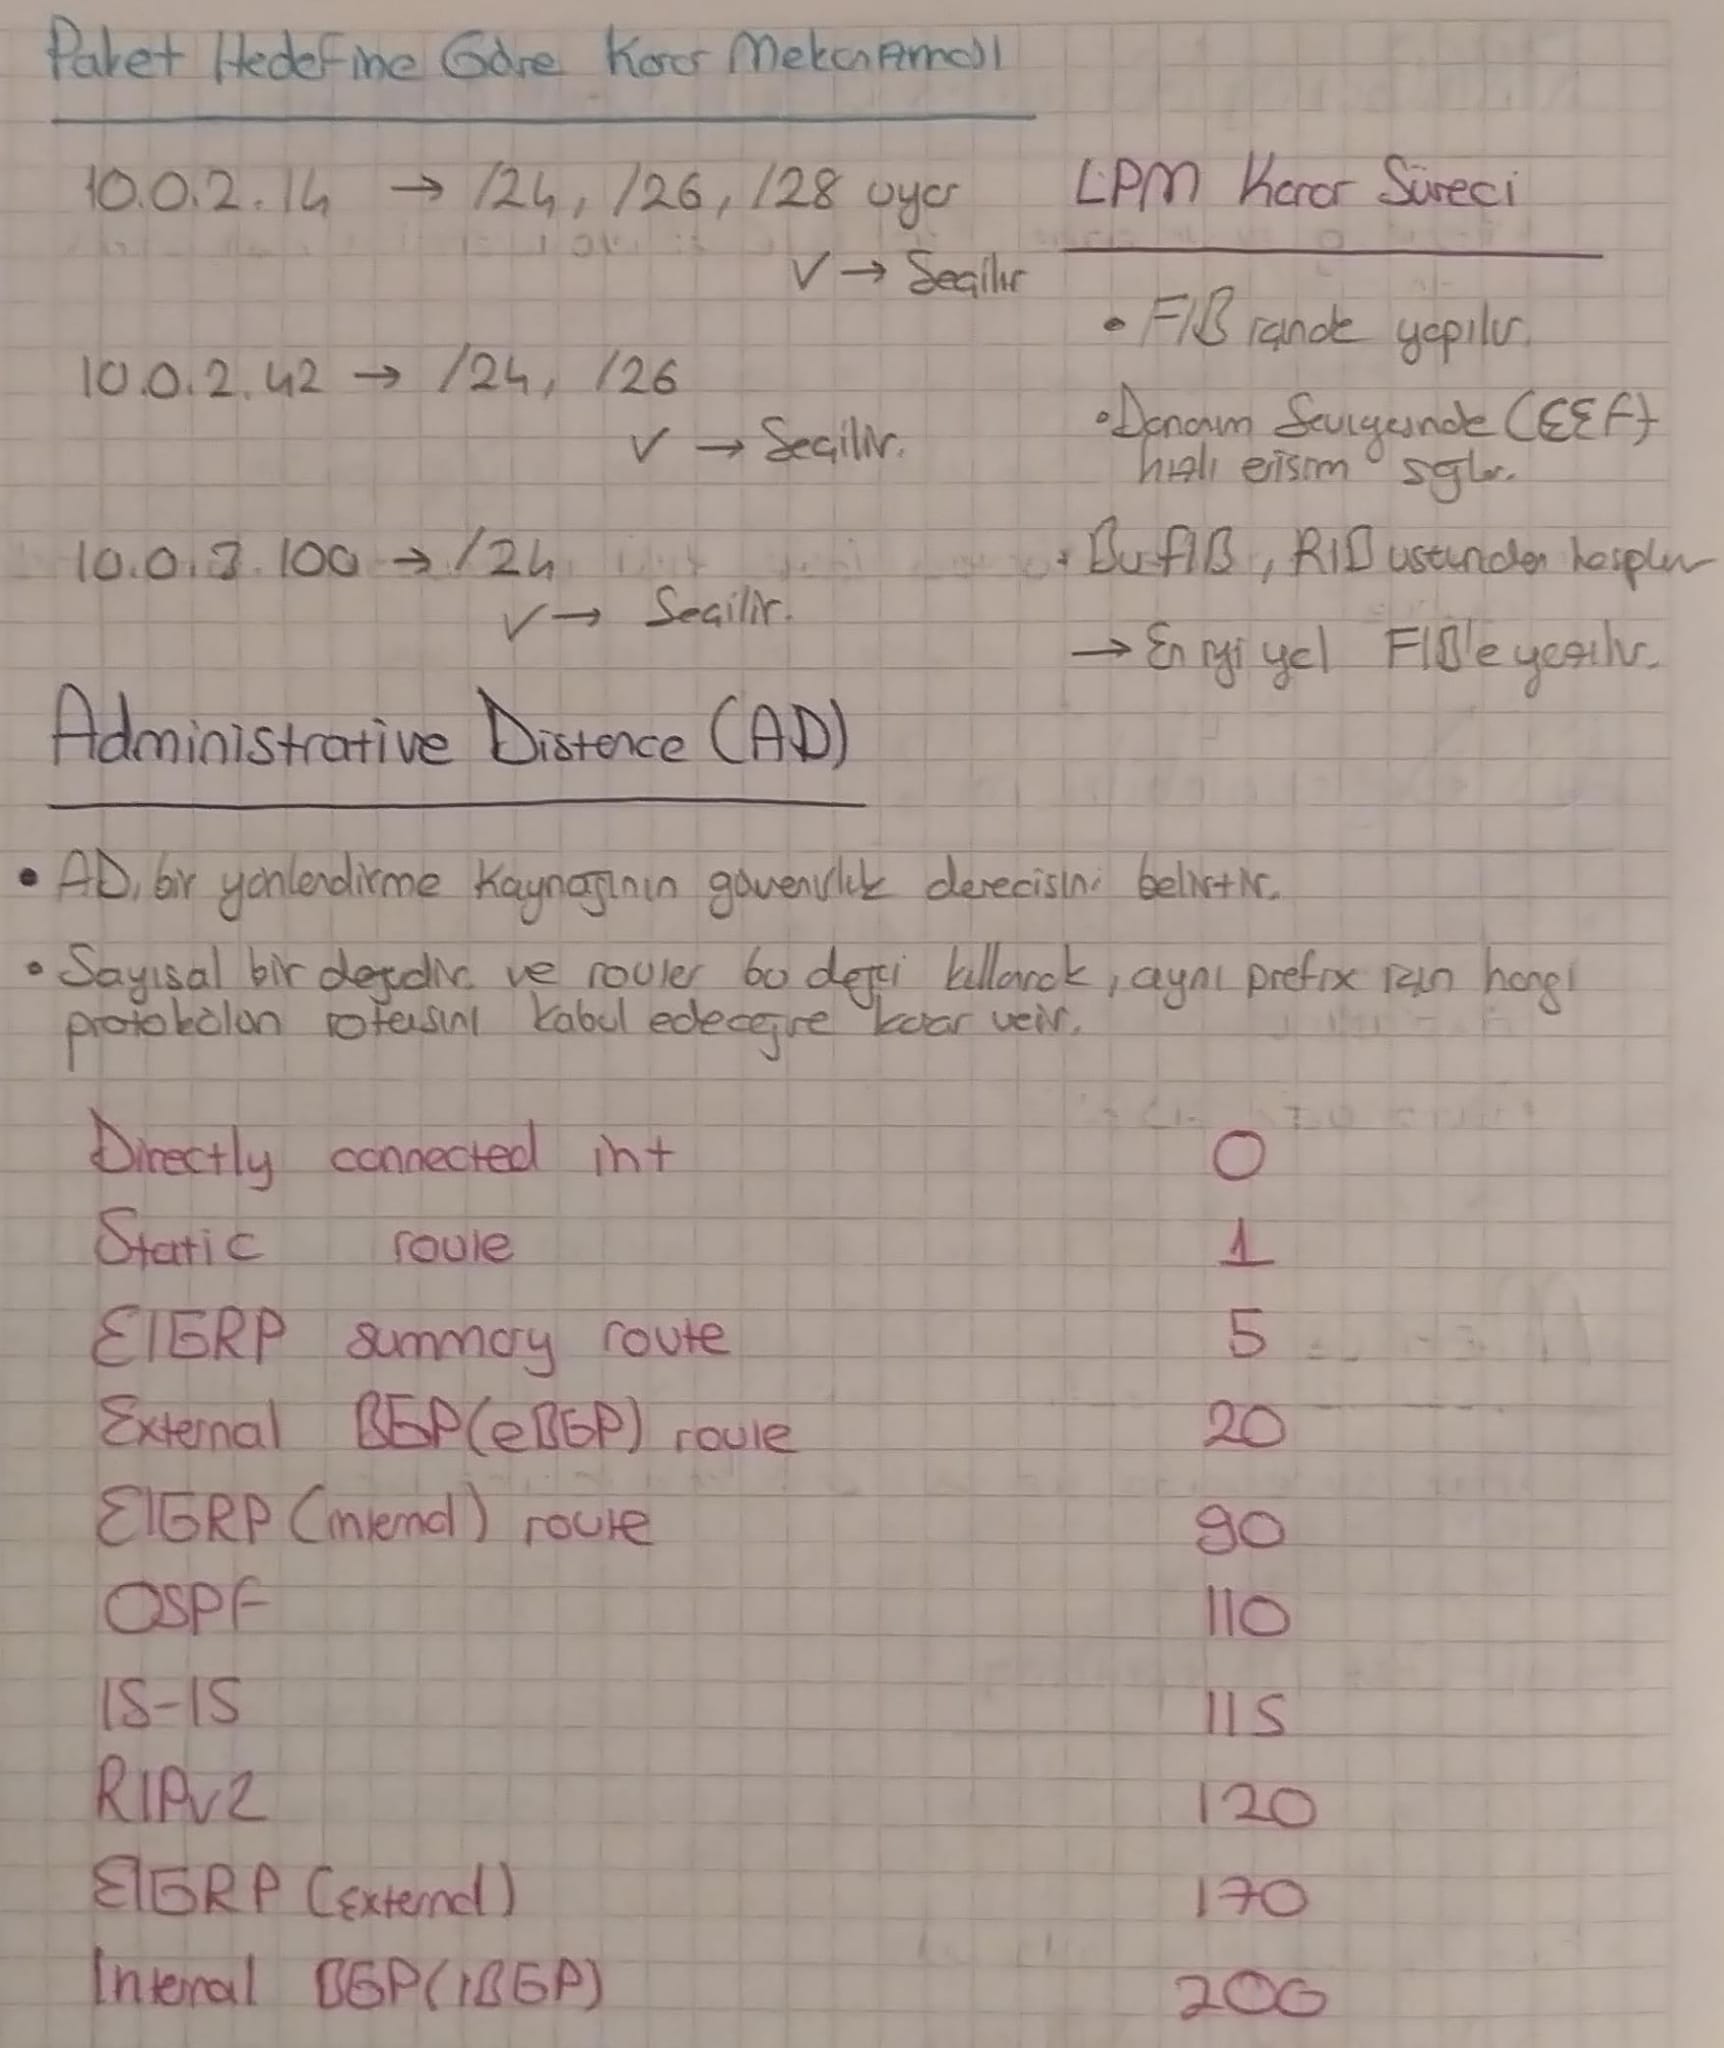 Paket Hedefine Göre Karar Mekanizması
10.0.2.14 → /24, /26, /28 uyar
✓ → Seçilir
10.0.2.42 → /24, /26
✓ → Seçilir.
10.0.3.100 → /24
✓ → Seçilir.
LPM Karar Süreci
• FIB içinde yapılır.
• Donanım Seviyesinde (CEF)
hızlı erişim sağlar.
• Bu FIB, RIB üstünden hesaplanır
→ En iyi yol FIB'e yazılır.
Administrative Distence (AD)
• AD, bir yönlendirme kaynağının güvenirlik derecisini belirtir.
• Sayısal bir değerdir ve router bu değeri kullanarak, aynı prefix için hangi
protokolün rotasını kabul edeceğine karar verir.
Directly connected int 0
Static route 1
EIGRP summary route 5
External BGP(eBGP) route 20
EIGRP (internal) route 90
OSPF 110
IS-IS 115
RIPv2 120
EIGRP (External) 170
Internal BGP(iBGP) 200